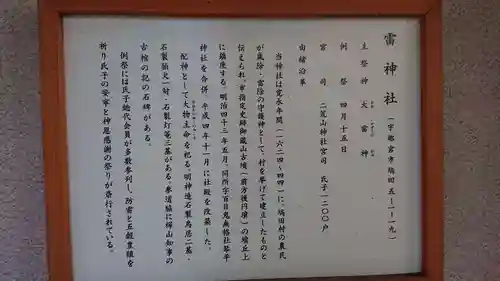 雷神社 (宇都宮市塙田五―一―一九)
主祭神 大雷神
例祭 四月十五日
宮司 二荒山神社宮司 氏子一二〇〇戸
由緒沿革
当神社は寛永年間(一六二四~四四)に、塙田村の農民
が歳除・雷除の守護神として、村を挙げて建立したものと
伝えられ、市指定史跡御蔵山古墳(前方後円墳)の墳丘上
に鎮座する。明治四十三年五月、同所字百目鬼無格社琴平
神社を合併、平成四年十一月に社殿を改築した。
配神として大物主命を祀る。明神造石製鳥居二基・
石製狛犬一対・石製灯篭三基がある。参道脇に樺山知事の
古棺の記の石碑がある。
例祭には氏子総代会員が多数参列し、防雷と五穀豊穣を
祈り氏子の安寧と神恩感謝の祭りが斎行されている。